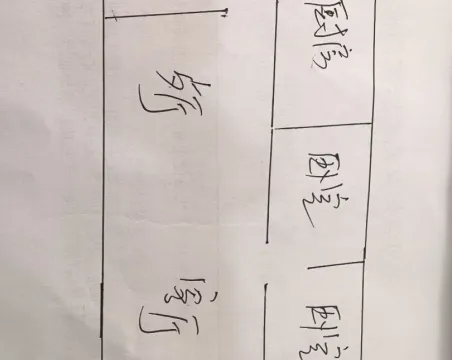 厨房
卧室
客厅
卧室